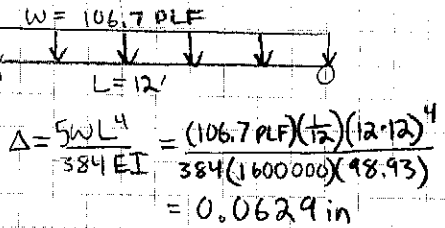 W = 106.7 PLF
L = 12'
Δ = 5WL⁴ / 384EI = (106.7 PLF)(1/12)(12·12)⁴ / 384(1600000)(98.93)
= 0.0629 in